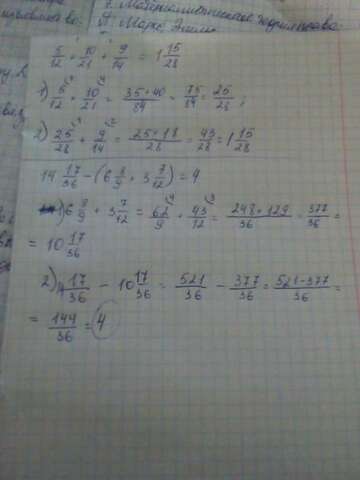 5/12 + 10/21 + 9/14 = 1 15/28
1) 5/12 + 10/21 = 35+40/84 = 75/84 = 25/28;
2) 25/28 + 9/14 = 25+18/28 = 43/28 = 1 15/28
14 17/36 - (6 8/9 + 3 7/12) = 4
1) 6 8/9 + 3 7/12 = 62/9 + 43/12 = 248+129/36 = 377/36 =
= 10 17/36
2) 14 17/36 - 10 17/36 = 521/36 - 377/36 = 521-377/36 =
= 144/36 = 4